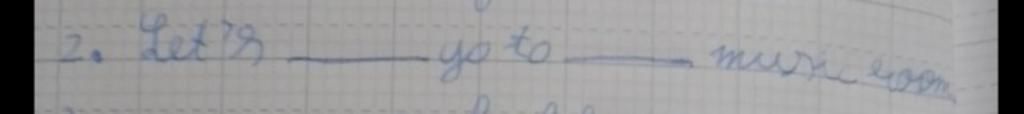 2. Let's ____ go to ____ music room